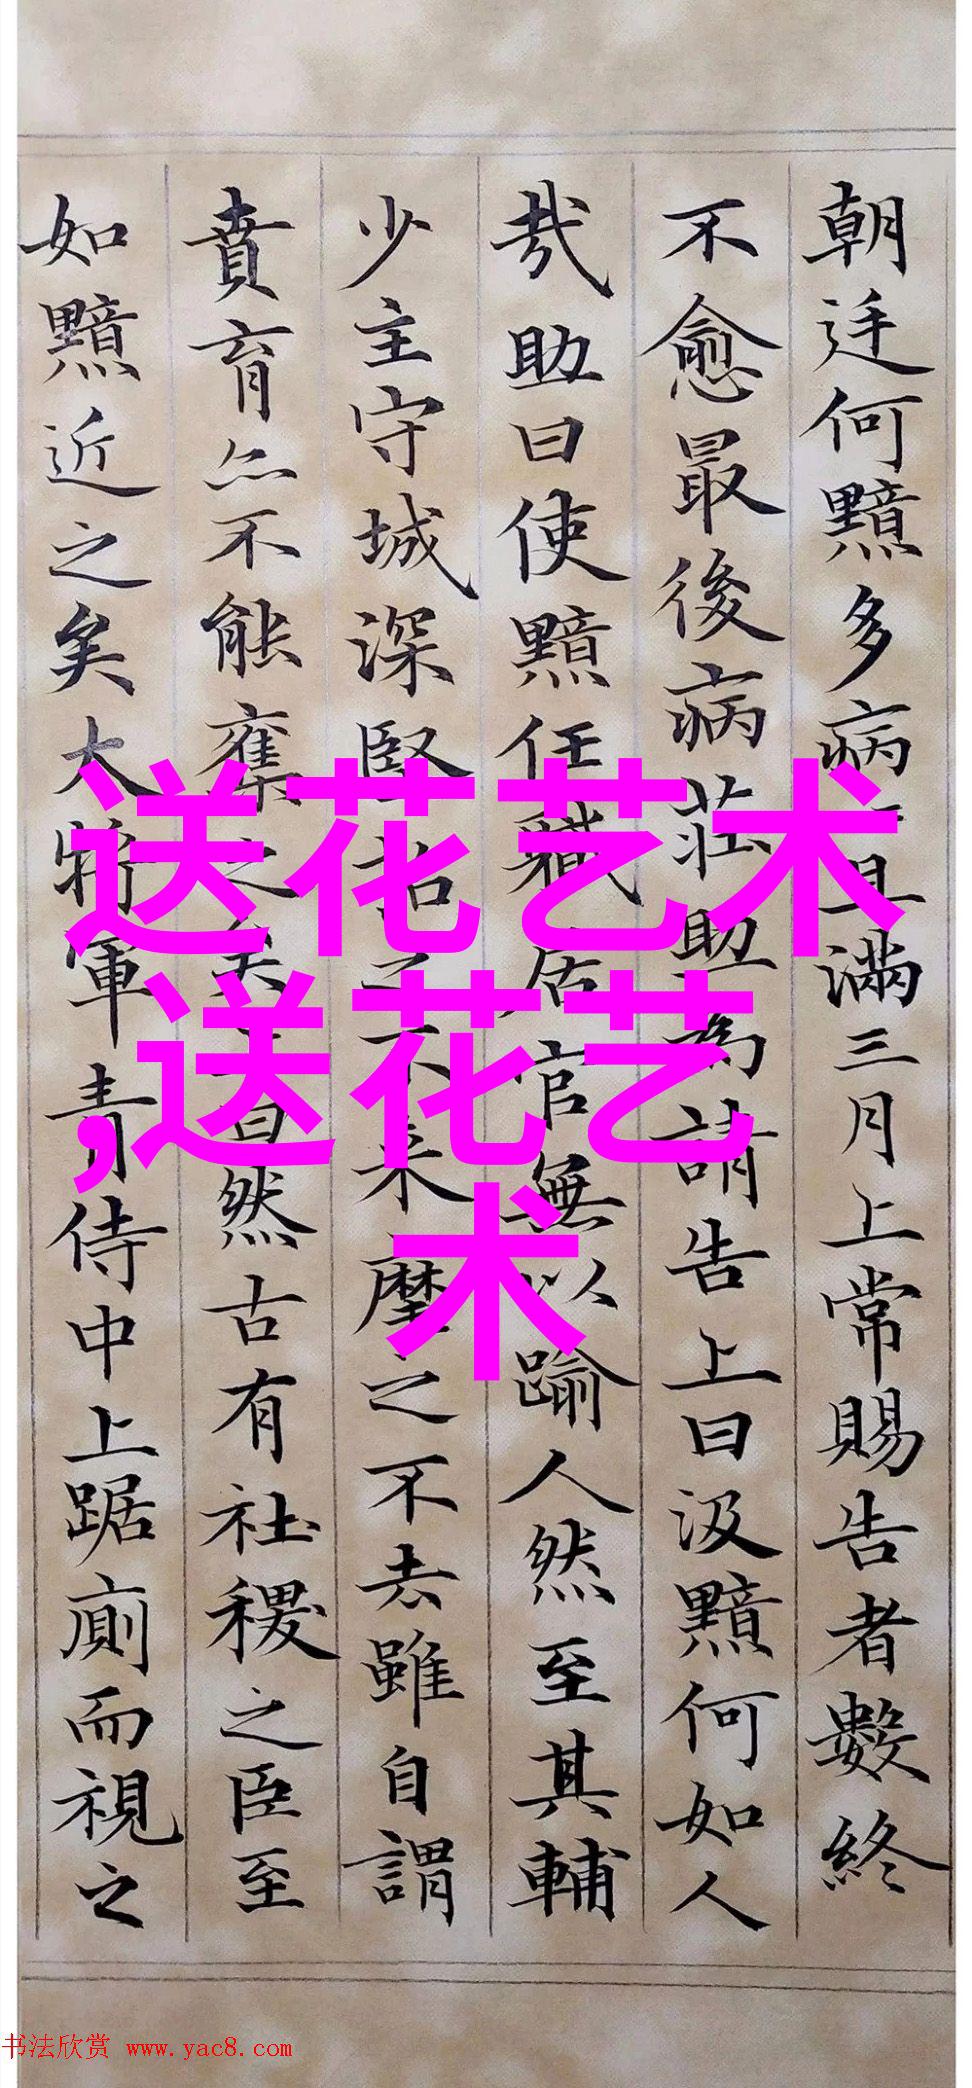 朝廷何黯多病病且滿三月上常賜告者數終
不愈最後病莊助為請告上曰汲黯何如人
哉助曰使黯任職居官無以踰人然至其輔
少主守城深堅招之不来麾之不去雖自謂
賁育亦不能奪之矣上曰然古有社稷之臣至
如黯近之矣大將軍青侍中上踞廁而視之
送花艺术
,送花艺
术
书法欣赏 www.yac8.com